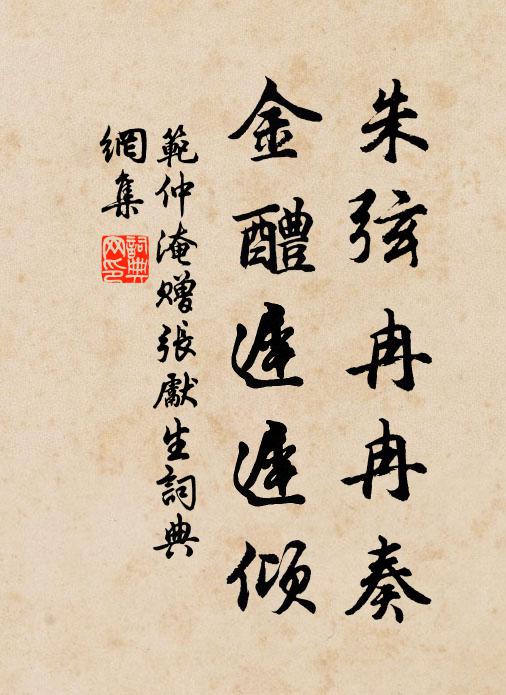 朱弦冉冉奏
金醴遲遲傾
範仲淹贈張獻生詞典
網集
詞典
网印